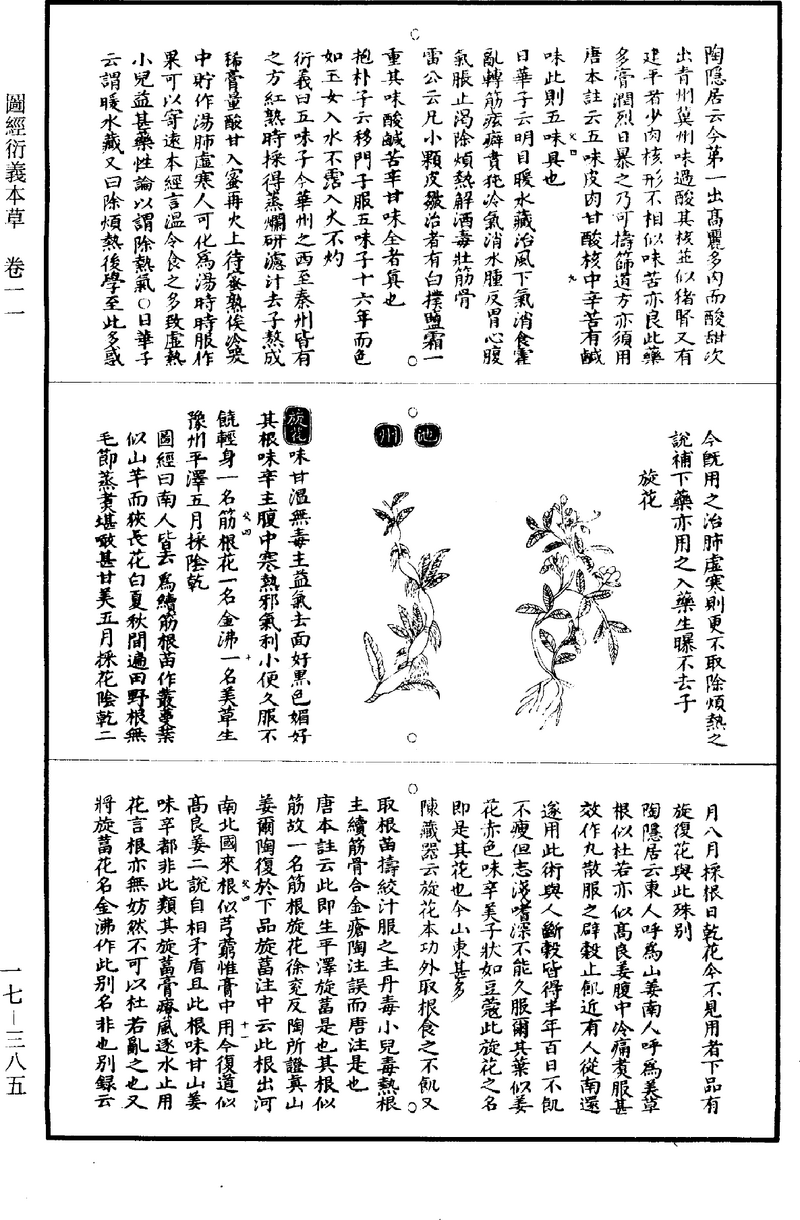 圖經衍義本草　卷一一
一七—三八五
陶隱居云今第一出高麗多肉而酸甜次
出青州冀州味過酸其核並似猪腎又有
建平者少肉核形不相似味苦亦良此藥
多膏潤烈日暴之乃可擣篩道方亦須用
唐本註云五味皮肉甘酸核中辛苦有鹹
味此則五味具也
日華子云明目暖水藏治風下氣消食霍
亂轉筋痃癖賁㹠冷氣消水腫反胃心腹
氣脹止渴除煩熱解酒毒壯筋骨
雷公云凡小顆皮皺泡者有白撲鹽霜一
重其味酸鹹苦辛甘味全者真也
抱朴子云移門子服五味子十六年而色
如玉女入水不霑入火不灼
衍義曰五味子今華州之西至秦州皆有
之方紅熟時採得蒸爛研濾汁去子熬成
稀膏量酸甘入蜜再火上待蜜熟俟冷器
中貯作湯肺虛寒人可化為湯時時服作
果可以寄遠本經言溫今食之多致虛熱
小兒益甚藥性論以謂除熱氣○日華子
云謂暖水藏又曰除煩熱後學至此多惑
今既用之治肺虛寒則更不取除煩熱之
說補下藥亦用之入藥生曝不去子
旋花
池
州
旋花　味甘溫無毒主益氣去面䵟黑色媚好
其根味辛主腹中寒熱邪氣利小便久服不
饑輕身一名筋根花一名金沸一名美草生
豫州平澤五月採陰乾
圖經曰南人皆云為續筋根苗作叢蔓葉
似山芋而狹長花白夏秋間遍田野根無
毛節蒸煮堪啖甚甘美五月採花陰乾二
月八月採根日乾花今不見用者下品有
旋復花與此殊別
陶隱居云東人呼為山姜南人呼為美草
根似杜若亦似高良姜腹中冷痛煮服甚
效作丸散服之辟穀止飢近有人從南還
遂用此術與人斷穀皆得半年百日不飢
不瘦但志淺嗜深不能久服爾其葉似姜
花赤色味辛美子狀如豆蔻此旋花之名
即是其花也今山東甚多
陳藏器云旋花本功外取根食之不飢又
取根苗擣絞汁服之主丹毒小兒毒熱根
主續筋骨合金瘡陶注誤而唐注是也
唐本註云此即生平澤旋葍是也其根似
筋故一名筋根旋花徐兗反陶所證真山
姜爾陶復於下品旋葍注中云此根出河
南北國來根似芎藭惟膏中用今復道似
高良姜二說自相矛盾且此根味甘山姜
味辛都非此類其旋葍膏療風逐水止用
花言根亦無妨然不可以杜若亂之也又
將旋葍花名金沸作此別名非也別錄云